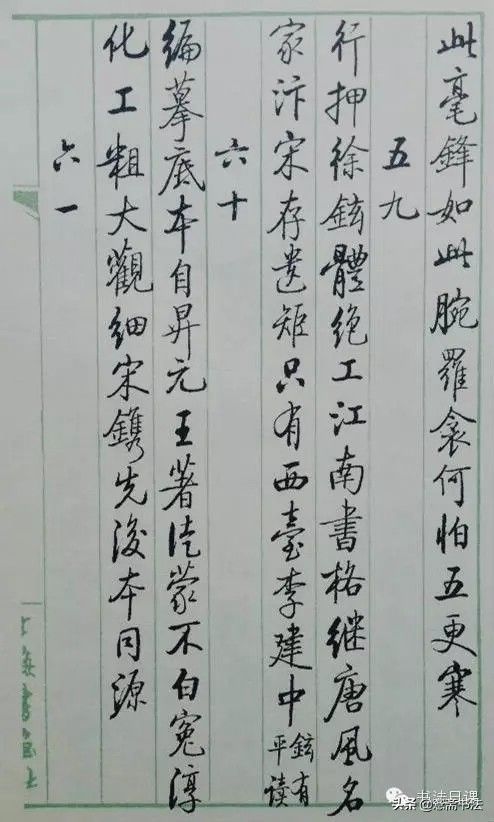 此毫鋒如此腕羅衾何怕五更寒
五九
行押徐鉉體絶工江南書格继唐風名
家汴宋存遺矩只有西臺李建中鉉有
平读
六十
編摹底本自昇元王著徒蒙不白冤淳
化工粗大觀细宋鐫先後本同源
六一
书法日课
头条@慈斋书法